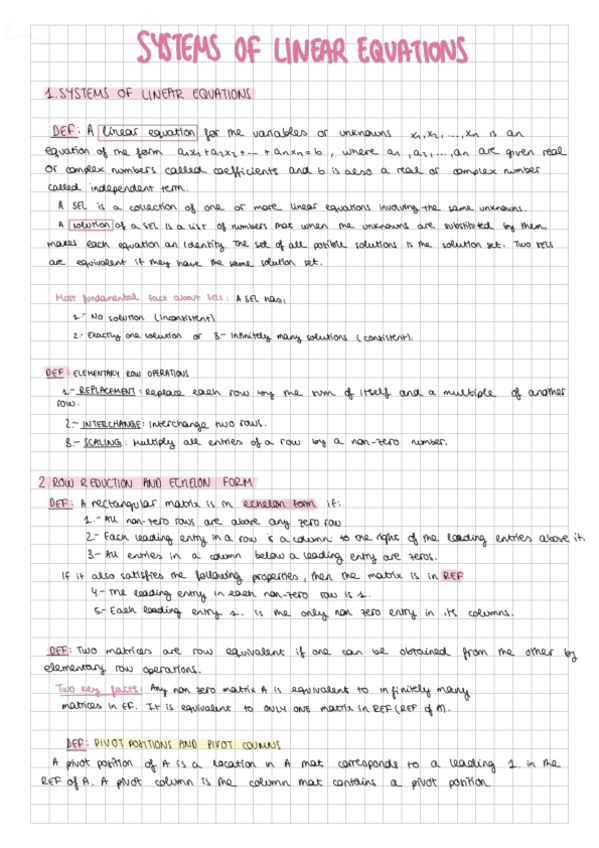 SYSTEMS OF LINEAR EQUATIONS
1. SYSTEMS OF LINEAR EQUATIONS
DEF: A linear equation for the variables or unknowns x₁, x₂, ..., xn is an
equation of the form a₁x₁ + a₂x₂ + ... + anxn = b, where a₁, a₂, ..., an are given real
or complex numbers called coefficients and b is also a real or complex number
called independent term.
A SEL is a collection of one or more linear equations involving the same unknowns.
A solution of a SEL is a list of numbers that when the unknowns are substituted by them,
makes each equation an identity. The set of all posible solutions is the solution set. Two SELs
are equivalent if they have the same solution set.
Most fundamental fact about SELs: A SEL has:
1.- No solution (Inconsistent)
2.- Exactly one solution or 3.- Infinitely many solutions (consistent).
DEF: ELEMENTARY ROW OPERATIONS
1.- REPLACEMENT: Replace each row by the sum of itself and a multiple of another
row.
2.- INTERCHANGE: Interchange two rows.
3.- SCALING: Multiply all entries of a row by a non-zero number.
2. ROW REDUCTION AND ECHELON FORM
DEF: A rectangular matrix is in echelon form if:
1.- All non-zero rows are above any zero row
2.- Each leading entry in a row is a column to the right of the leading entries above it.
3.- All entries in a column below a leading entry are zeros.
If it also satisfies the following properties, then the matrix is in REF
4.- The leading entry in each non-zero row is 1.
5.- Each leading entry 1. is the only non zero entry in its columns.
DEF: Two matrices are row equivalent if one can be obtained from the other by
elementary row operations.
Two key facts: Any non zero matrix A is equivalent to infinitely many
matrices in EF. It is equivalent to ONLY ONE matrix in REF (REF of A).
DEF: PIVOT POSITIONS AND PIVOT COLUMNS
A pivot position of A is a location in A that corresponds to a leading 1. in the
REF of A. A pivot column is the column that contains a pivot position